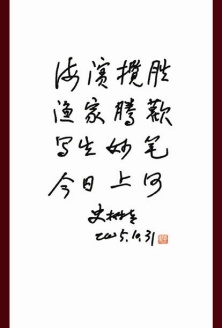 海滨揽胜
渔家腾欢
写生妙笔
今日上河
史树青
2005.10.31